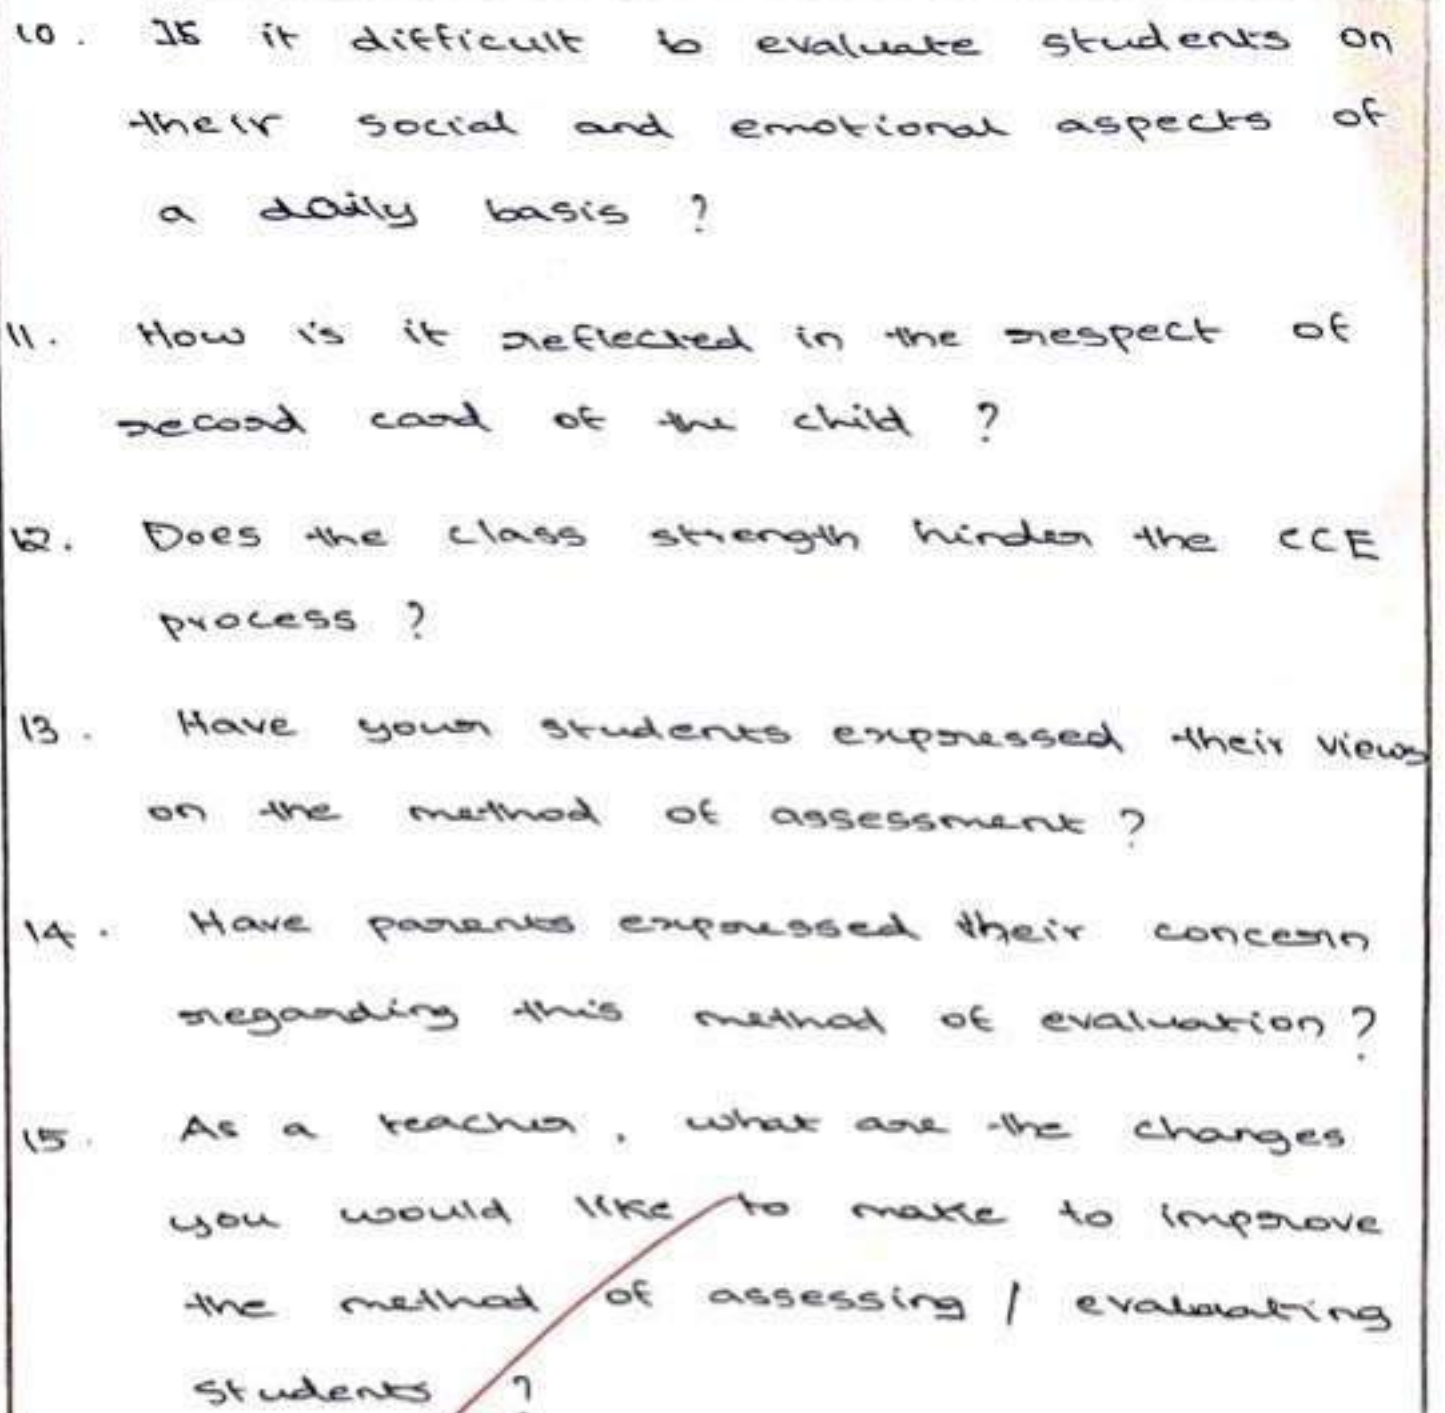 10. Is it difficult to evaluate students on
their social and emotional aspects of
a daily basis ?
11. How is it reflected in the respect of
record card of the child ?
12. Does the class strength hinder the CCE
process ?
13. Have your students expressed their views
on the method of assessment ?
14. Have parents expressed their concern
regarding this method of evaluation ?
15. As a teacher, what are the changes
you would like to make to improve
the method of assessing / evaluating
students ?